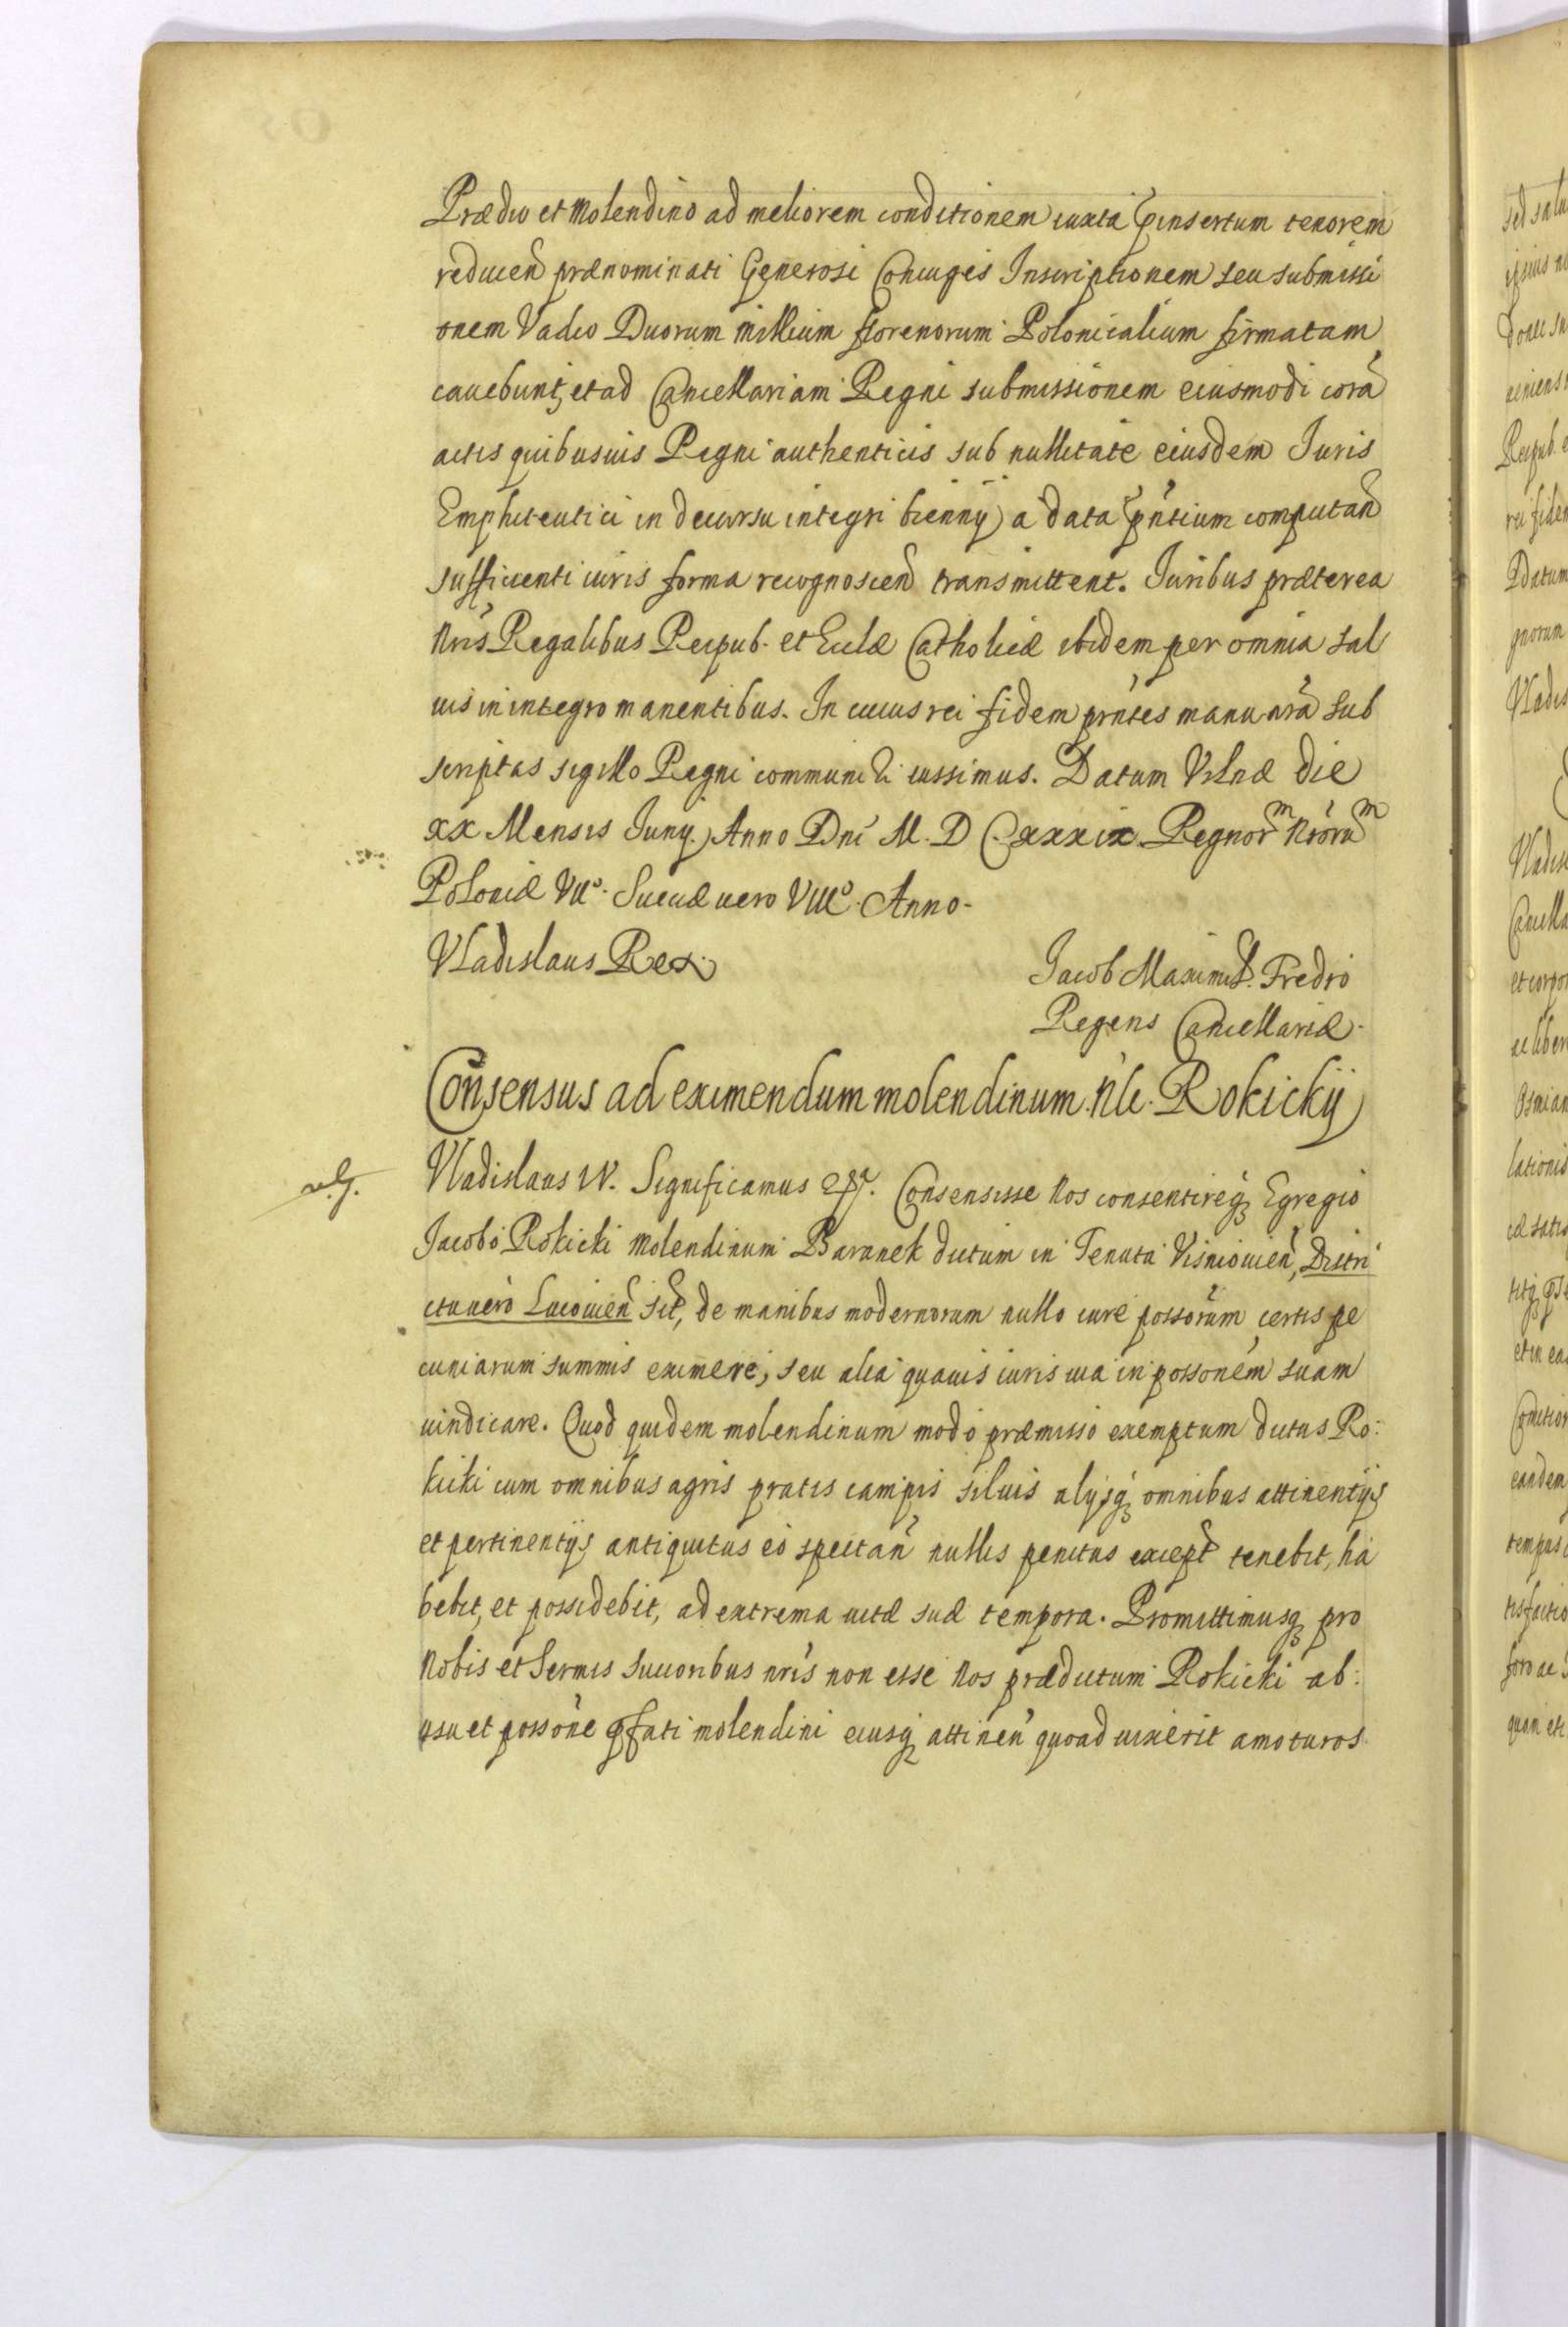 Prædio et Molendino ad meliorem conditionem iuxta p̱insertum tenorem
reducen̄ prænominati Generosi Coniuges Inscriptionem seu submissi
onem Vadio Duorum Millium florenorum Polonicalium firmatam
cauebunt, et ad Cancellariam Regni submissionem eiusmodi corā
actis quibusuis Regni authenticis sub nullitate eiusdem Iuris
Emphiteutici in decursu integri bienny a data pn̄tium computan̄
sufficienti iuris forma recognoscen̄ transmittent. Iuribus præterea
Nrīs Regalibus Reipub. et Ecclæ Catholicæ ibidem per omnia sal
uis in integro manentibus. In cuius rei fidem prn̄tes manu nrā sub
scriptas sigillo Regni communiri iussimus. Datum Vilnæ die
xx Mensis Iuny. Anno Dnī M. D C. xxxix Regnorᵐ Nrōruᵐ
Poloniæ VIIº. Sueciæ uero VIIIº. Anno.
Vladislaus Rex.
Jacob Maximil. Fredro
Regens Cancellariæ.
Consensus ad eximendum molendinum Nli. Rokickij
Vladislaus IV. Significamus etc. Consensisse Nos consentireq̄ Egregio
Jacobo Rokicki Molendinum Baranek dictum in Tenuta Visniouien̄, Distri
ctu uero Lucouien̄ sit, de manibus modernorum nullo iure possorūm certis pe
cuniarum summis eximere, seu alia quauis iuris uia in possonēm suam
uindicare. Quod quidem molendinum modo præmisso exemptum dictus Ro:
kicki cum omnibus agris pratis campis siluis alysq̄ omnibus attinentijs
et pertinentijs antiquitus eo spectan̄ nullis penitus except̄ tenebit, ha
bebit, et possidebit, ad extrema uitæ suæ tempora. Promittimusq̄ pro
Nobis et Sermis Succoribus nrīs non esse Nos prædictum Rokicki ab:
usu et possonē p̄fati molendini eiusq̄ attinen̄ quoad uixerit amoturos